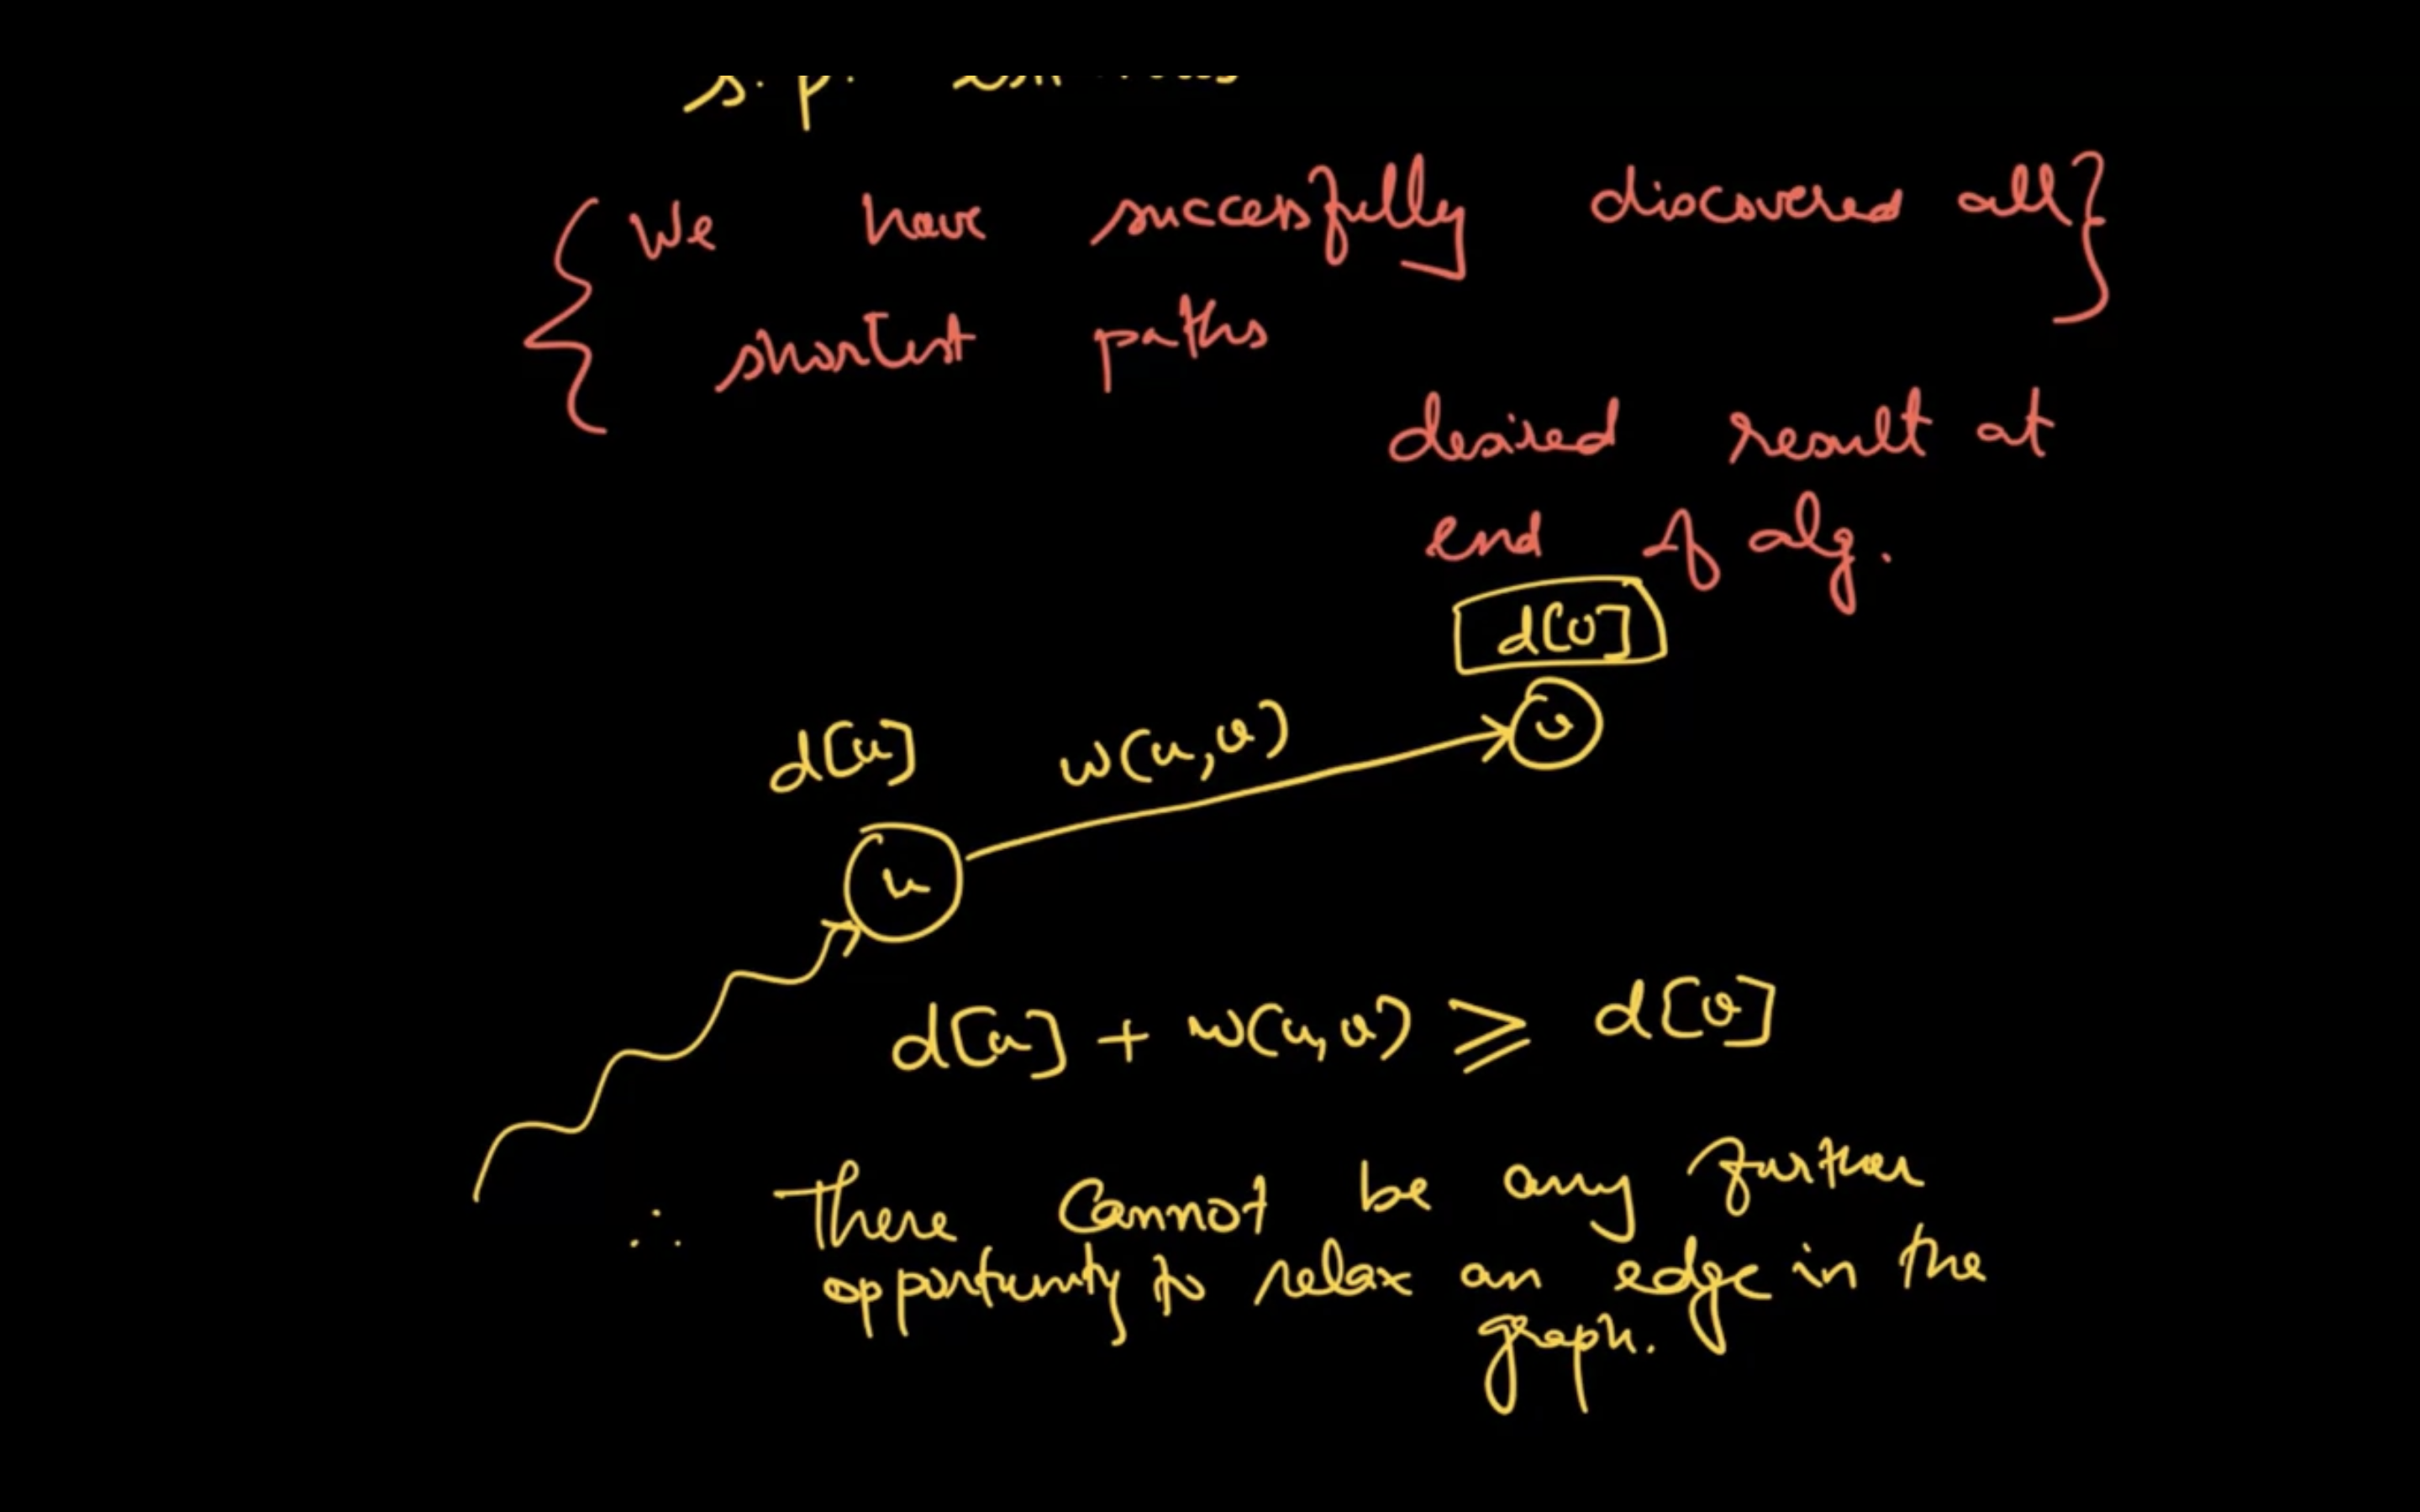 s.p.
{We have successfully discovered all}
shortest paths
desired result at
end of alg.
d[v]
d[u] w(u,v) v
u
d[u] + w(u,v) ⩾ d[v]
∴ There cannot be any further
opportunity to relax an edge in the
graph.